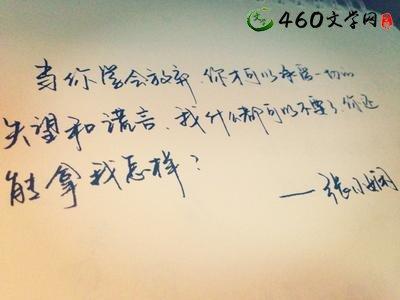 460文学网
当你学会放弃,你才可以承受一切的
失望和谎言,我什么都可以不要了,你还
能拿我怎样?
——张小娴